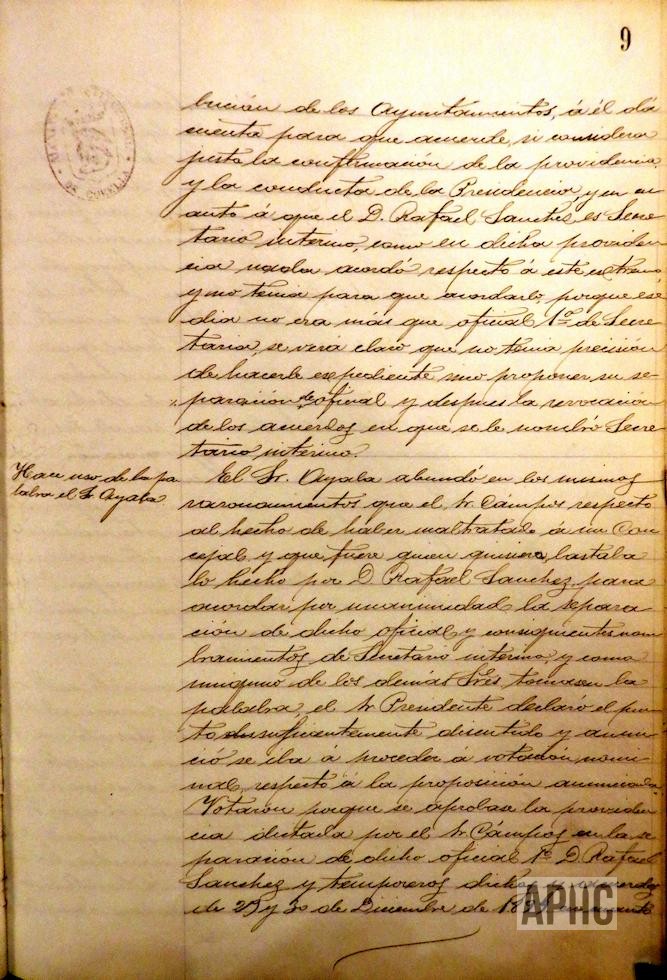 9
bución de los Ayuntamientos, á él dá
cuenta para que acuerde, si considera
justa la confirmación de la providencia
y la conducta de la Presidencia y en cu
anto á que el D. Rafael Sanchez es Secre
tario interino, como en dicha providen
cia nada acordó respecto á este extremo
y no tenia para que acordarlo, porque ese
dia no era más que oficial 1º de Secre
taria, se verá claro que no tenia precisión
de hacerle expediente sino proponer su se
paración de oficial y despues la revocación
de los acuerdos en que se le nombró Secre
tario interino.
Hace uso de la pa
labra el Sr Ayala
El Sr. Ayala abundó en los mismos
razonamientos que el Sr Cámpos respecto
al hecho de haber maltratado á un Con
cejal y que fuere quien quisiera, bastaba
lo hecho por D. Rafael Sanchez para
acordar por unanimidad la separa
ción de dicho oficial y consiguientes nom
bramientos de Secretario interino, y como
ninguno de los demás Sres tomasen la
palabra, el Sr Presidente declaró el pun
to suficientemente discutido y anun
ció se iba á proceder á votación nomi
nal respecto á la proposición anunciada.
Votaron porque se aprobase la providen
cia dictada por el Sr Cámpos en la se
paración de dicho oficial 1º D. Rafael
Sanchez y temporeros
de 29 y 30 de Diciembre de
APHC